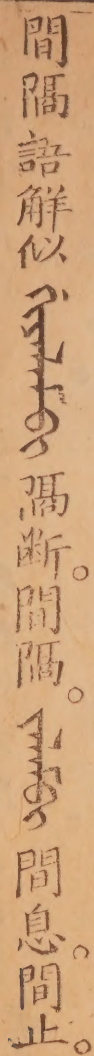 間隔語解似 隔断。間隔。 間息。間止。